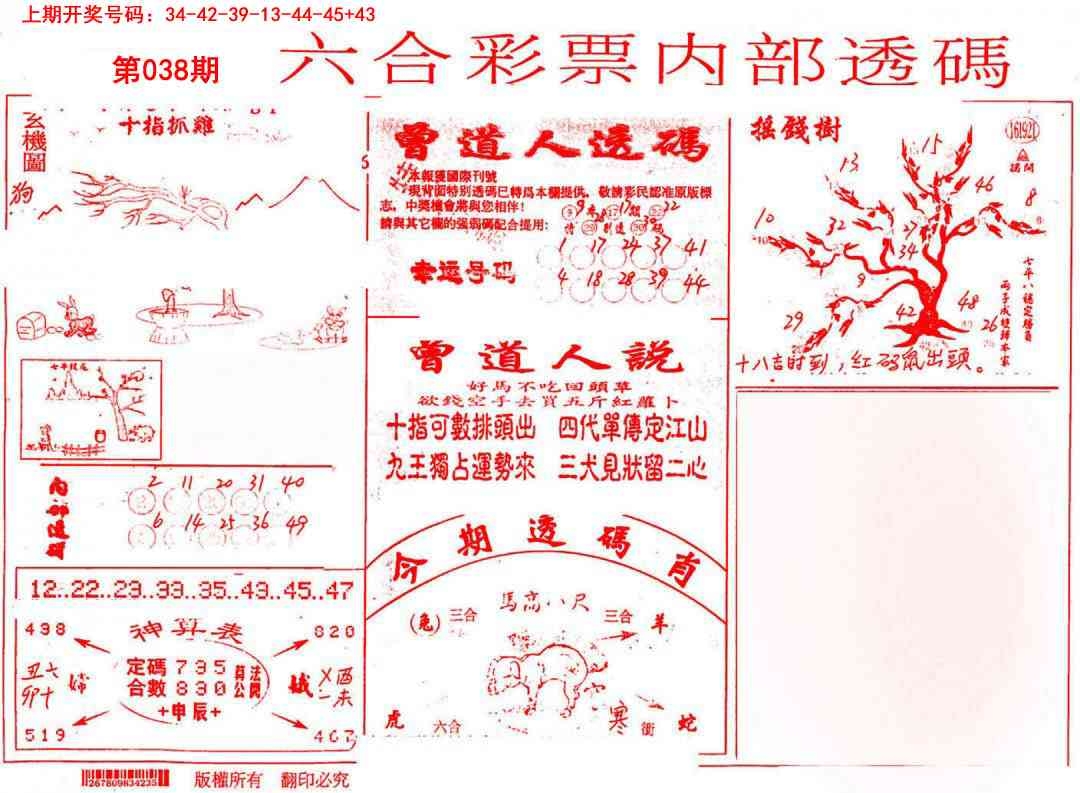 上期开奖号码：34-42-39-13-44-45+43
第038期
六合彩票内部透碼
玄機圖
十指抓雞
狗
曾道人透碼
本報獲國際刊號
現背面特别透碼已轉爲本欄提供，敬請彩民認准原版標
志，中奬機會將與您相伴！
請與其它欄的强弱碼配合提用：
9 17 32
39
幸运号码
1 17 24 37 41
4 18 28 39 44
摇錢樹
16192
13 15 46 8
10 32 27 34
9 42 48 26
29
十八吉时到，红码鼠出頭。
曾道人説
好馬不吃回頭草
欲錢空手去買五斤紅蘿卜
十指可數排頭出 四代單傳定江山
九王獨占運勢來 三犬見狀留二心
内部透碼
2 11 20 31 40
6 14 25 36 49
12..22..23..33..35..43..45..47
神算表
498 820
519 467
定碼 795
合數 830
+申辰+
丑七
卯十
酉
未
今期透碼肖
馬高八尺
(兔) 三合 三合 羊
虎 六合 寒 衝 蛇
版權所有 翻印必究